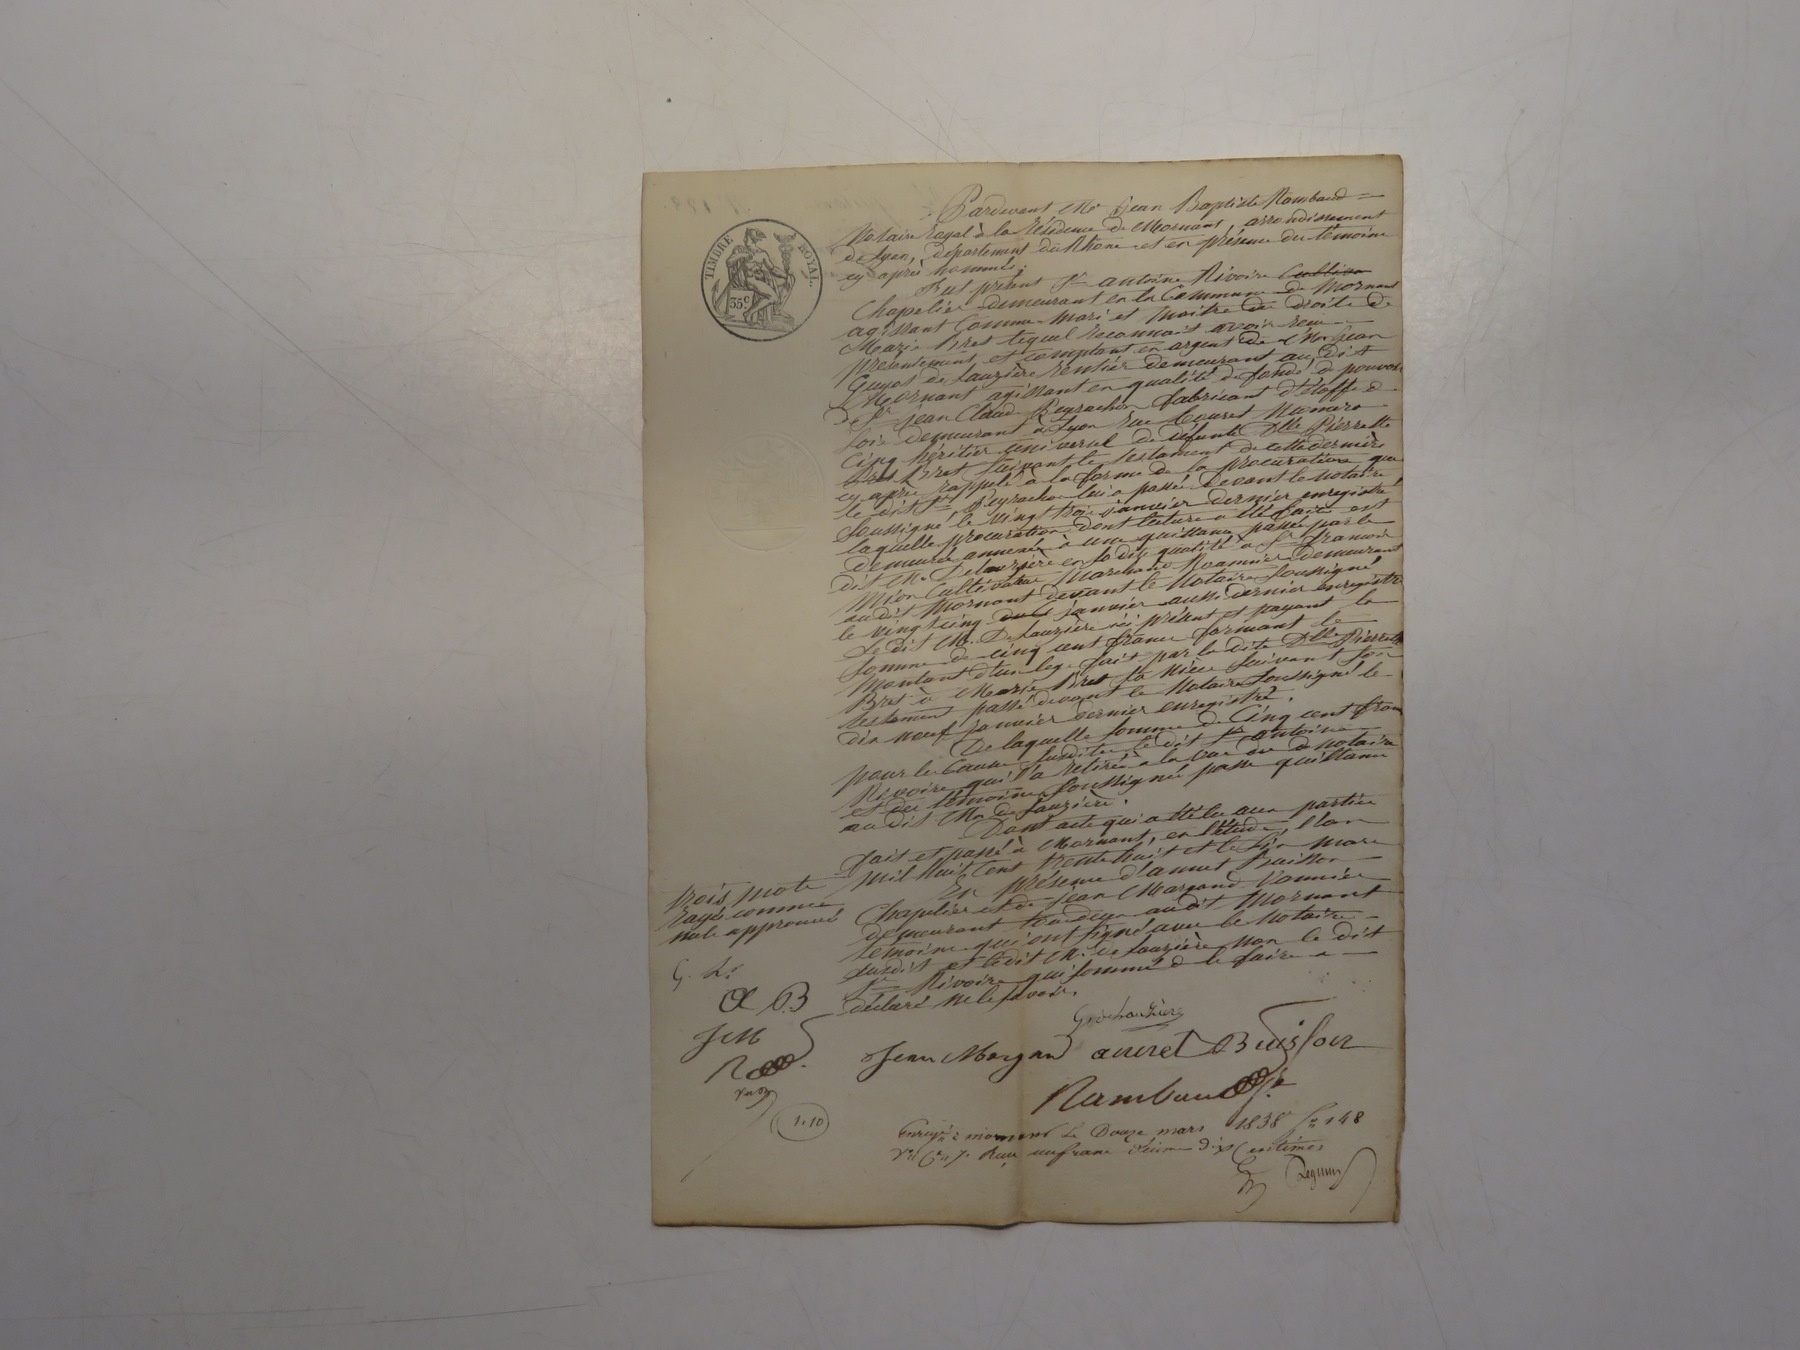 TIMBRE ROYAL
35 c
Pardevant Me Jean Baptiste Rambaud
Notaire Royal à la résidence de Mornant, arrondissement
de Lyon, département du Rhône et en présence des témoins
cy après nommés;
Fut présent Sr antoine Rivoire
Chapelier demeurant en la Commune de Mornant
agissant Comme Mari et Maitre des droits de
Marie Bret lequel reconnait avoir reçu
présentement et comptant en argent de Mr Jean
Guyot de Lauzière rentier demeurant au dit
Mornant agissant en qualité de fondé de pouvoir
de Sr Jean Claude Peyrachon fabricant d'étoffe de
soie demeurant à Lyon rue Numéro
Cinq héritier universel de défunte Dlle Pierrette
Bret suivant le testament de cette dernière
cy après rappelé à la forme de la procuration que
le dit Sr Peyrachon lui a passée devant le notaire
soussigné le vingt trois janvier dernier enregistré
laquelle procuration dont lecture a été faite est
demeurée annexée à une quittance passée par le
dit Mr Delauzière en sa dite qualité à Sr francois
Mion Cultivateur Marchand demeurant
au dit Mornant devant le Notaire soussigné
le vingt cinq janvier aussi dernier enregistré
Le dit Mr De Lauzière ici présent et payant la
somme de cinq cent francs formant le
Montant d'un legs fait par la dite Dlle Pierrette
Bret à Marie Bret sa Nièce suivant son
testament passé devant le Notaire soussigné le
dix neuf janvier dernier enregistré.
De laquelle somme de Cinq cent francs
pour les Causes susdites le dit Sr antoine
Rivoire qui l'a retirée à la vue du dt notaire
et des témoins soussignés passe quittance
au dit Mr de Lauzière.
Dont acte qui a été lu aux parties
fait et passé à Mornant, en l'étude, l'an
mil huit cent trente huit et le six mars
En présence d'annet Buisson
Chapelier et de jean Margand Vannier
demeurant tous deux au dit Mornant
témoins qui ont signé avec le notaire
susdit et ledit Mr de Lauzière non le dit
Sr Rivoire qui sommé de le faire a
déclaré ne le savoir.
trois mots
rayés comme
nuls approuvés
G. L.
A B
JM
R
G. de Lauzière
Jean Margand annet Buisson
Rambaud
1.10
Enregé à mornant le Douze mars 1838 fo 148
Vo Ce 7. Reçu un franc décime dix Centimes